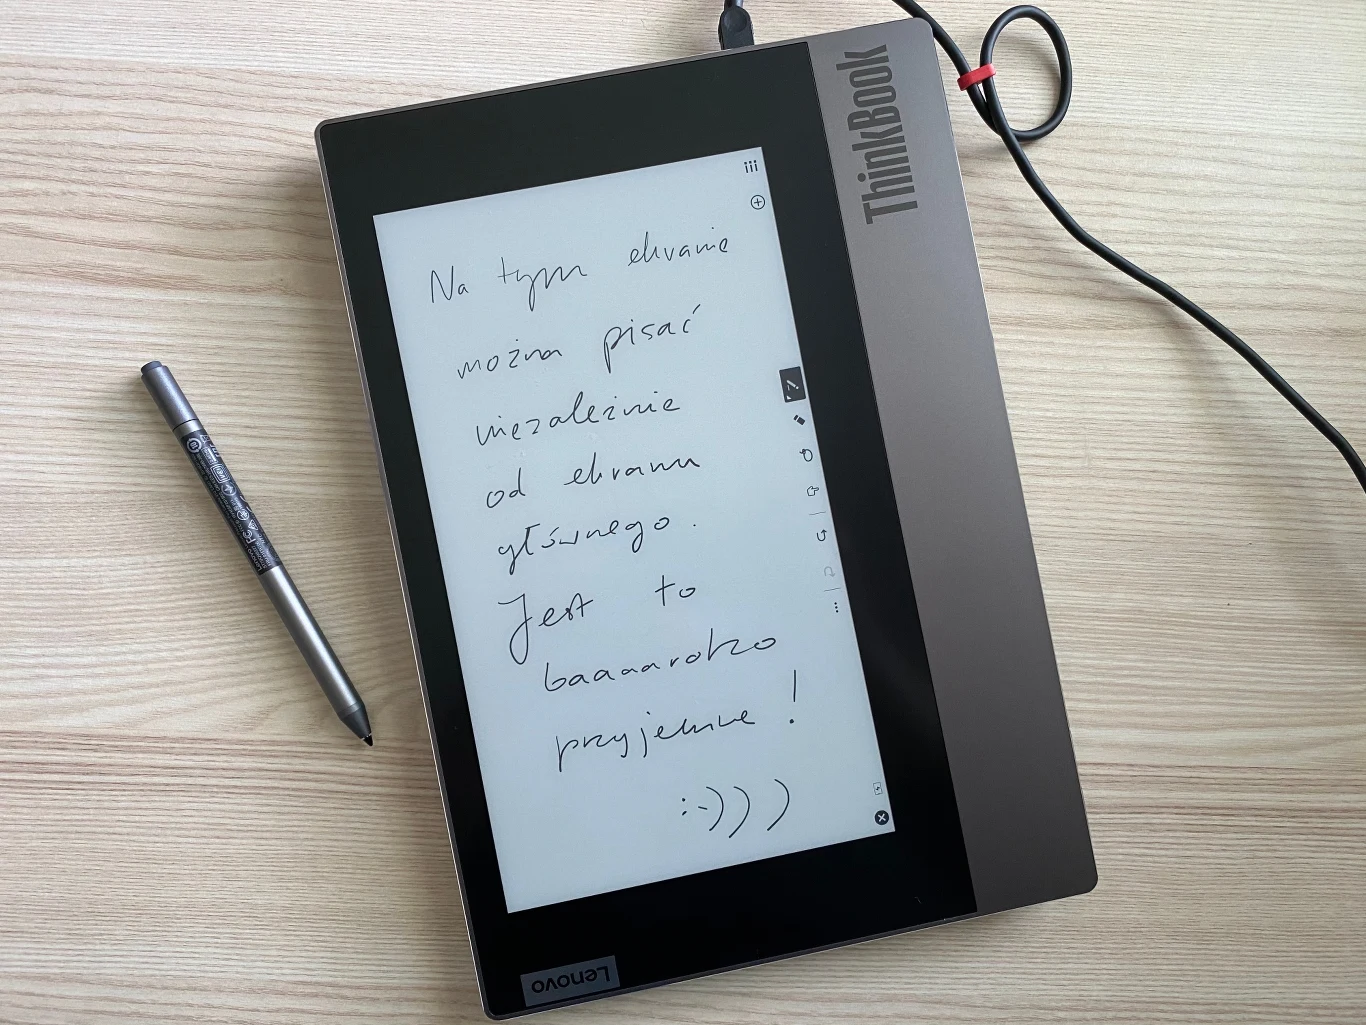 ThinkBook
Na tym ekranie
można pisać
niezależnie
od ekranu
głównego.
Jest to
baaaardzo
przyjemne !
:-) ) )
Lenovo